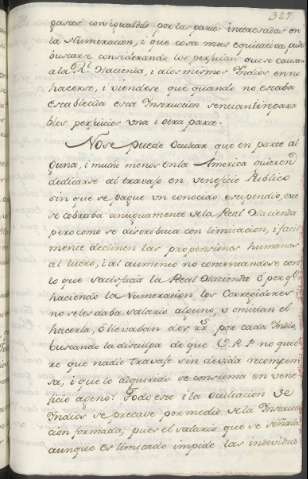 327
pasar con igualdad por las partes interesadas en
la Numeracion, i que cosa mas equitativa, pue
buscara considerando los perjuicios que se causa
a la Rl. Hacienda, i a los mesmos Indios en no
hacerse, i viendose que quando no estaba
establecida esta Instrucion
perjuicios una i otra parte.
No se puede dudar que en parte al
guna, i mucho menos en la America quieren
dedicarse al travajo en veneficio Publico
sin que se pague un conocido estipendio, este
se cobraba antiguamente de la Real Hacienda
pero como se distribuia con limitacion, i facil
mente declinen las propensiones humanas
al lucro, i al aumento no contentandose con
lo que satisfacia la Real Hacienda ó porq.
haciendo la Numeracion los Corregidores
no se les daba salario alguno, u omitian el
hacerla, ó llevaban dos rrs. por cada Indio
buscando la disculpa de que S. R. M. no quie
re que nadie travaje sin devida recompen
sa, i que lo adquirido se consuma en vene
ficio ageno. Todo esto i la ocultacion de
Indios se precave por medio de la Instruc
cion formada; pues el salario que se señala
aunque es limitado impide las